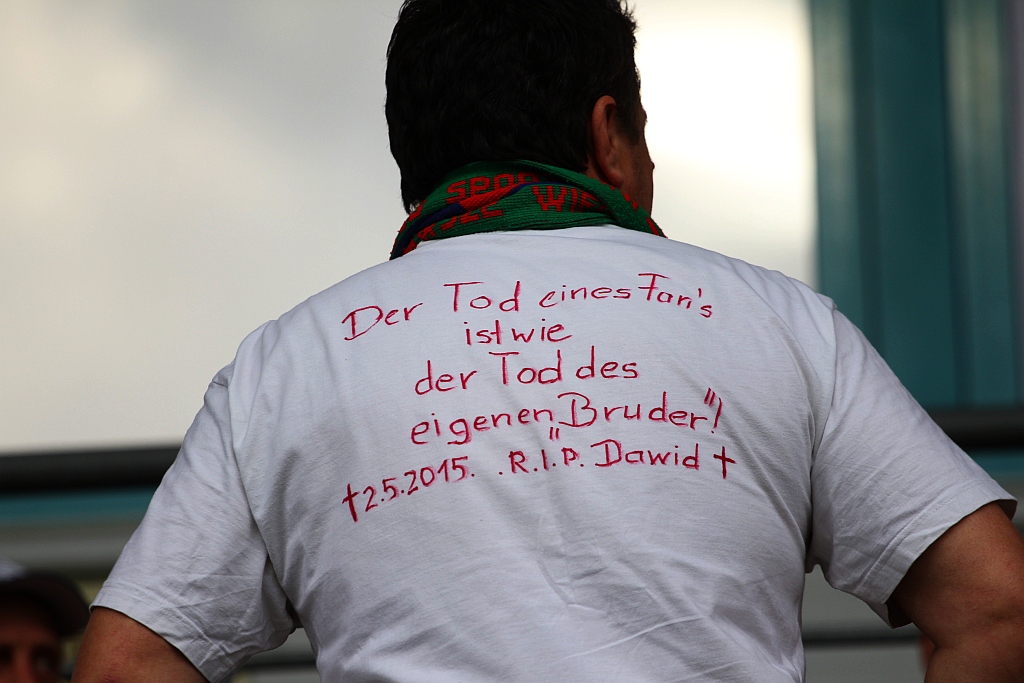 SPOR
WIE
Der Tod eines Fan's
ist wie
der Tod des
eigenen „Bruder"!
†2.5.2015. .R.I.P. Dawid †